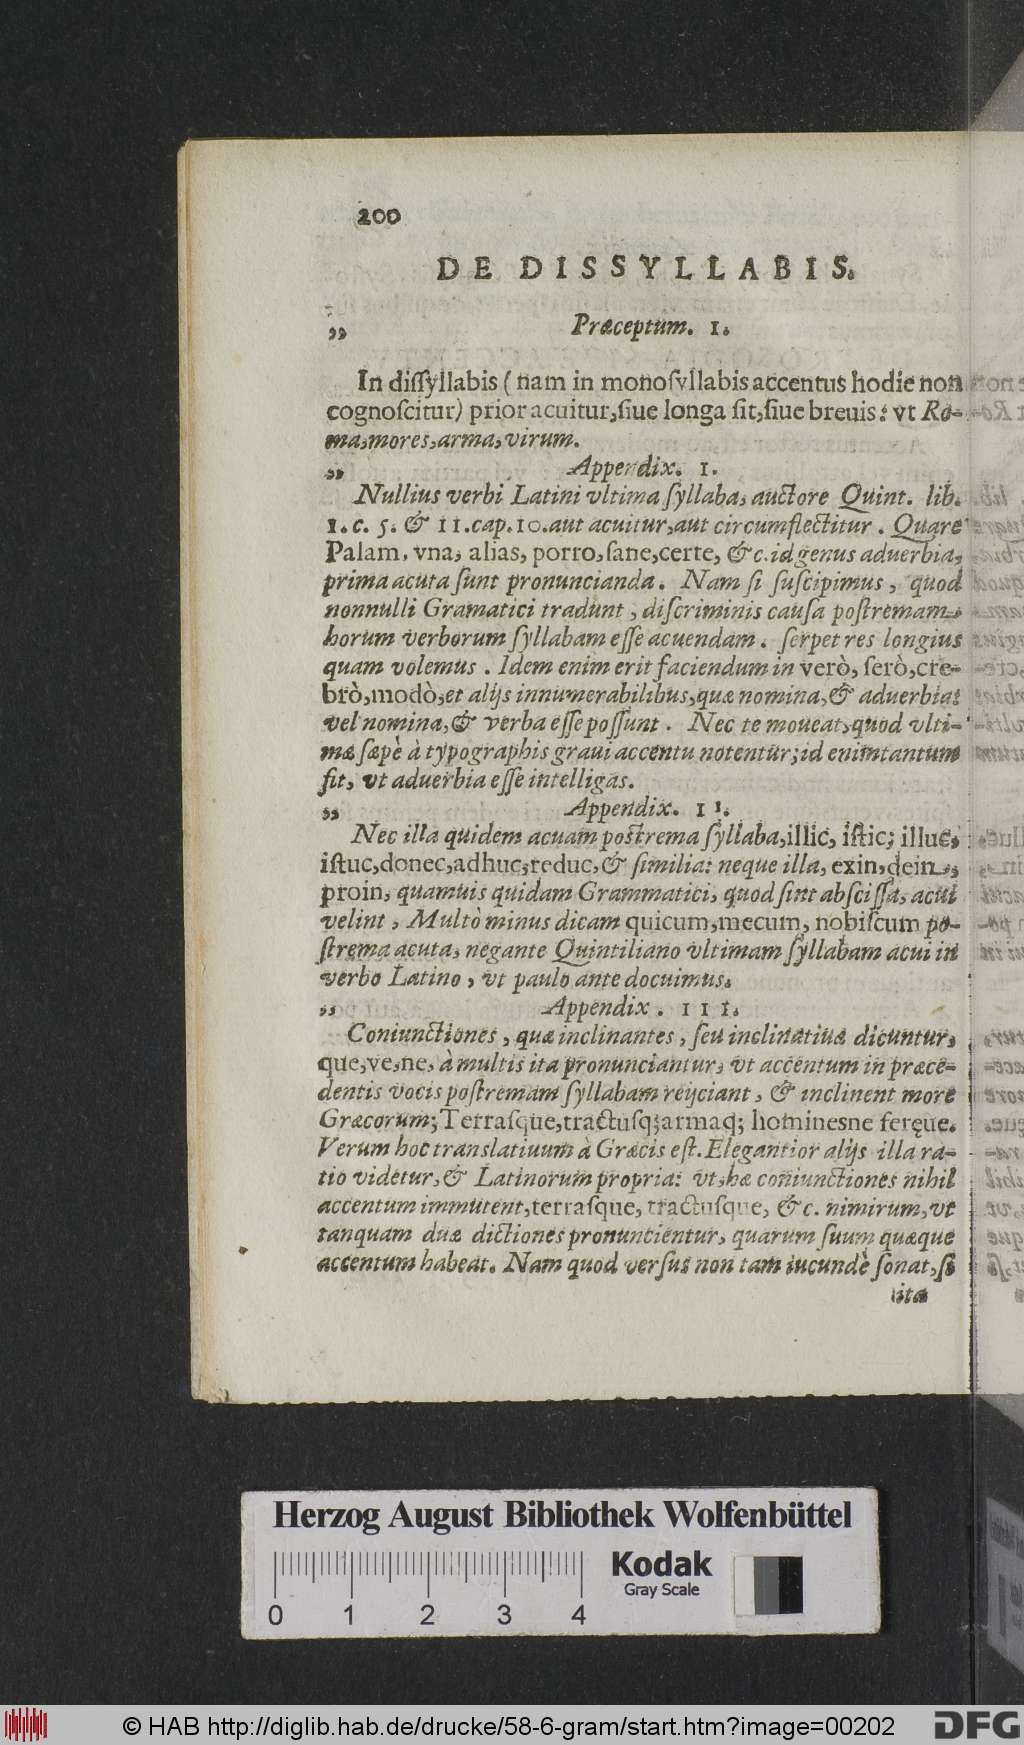 200
DE DISSYLLABIS.
„ Præceptum. 1.
In diſſyllabis ( nam in monoſyllabis accentus hodie non
cognoſcitur) prior acuitur,ſiue longa ſit,ſiue breuis: vt Ro-
ma,mores,arma,virum.
„ Appendix. 1.
Nullius verbi Latini vltima ſyllaba, auctore Quint. lib.
1. c. 5. & 11.cap.10.aut acuitur,aut circumflectitur. Quare
Palam, vna, alias, porro,ſane,certe, &c.id genus aduerbia,
prima acuta ſunt pronuncianda. Nam ſi ſuſcipimus, quod
nonnulli Gramatici tradunt, diſcriminis cauſa poſtremam
horum verborum ſyllabam eſſe acuendam. ſerpet res longius
quam volemus. Idem enim erit faciendum in verò, ſerò,cre-
brò,modò,et alijs innumerabilibus,quæ nomina,& aduerbia:
vel nomina,& verba eſſe poſſunt. Nec te moueat,quod vlti-
mæ ſæpè à typographis graui accentu notentur; id enim tantum
fit, vt aduerbia eſſe intelligas.
„ Appendix. 11.
Nec illa quidem acuam postrema ſyllaba,illic, iſtic; illuc,
iſtuc,donec,adhuc,reduc,& ſimilia: neque illa, exin,dein,
proin, quamuis quidam Grammatici, quod ſint abſciſſa, acui
velint, Multò minus dicam quicum,mecum, nobiſcum po-
ſtrema acuta, negante Quintiliano vltimam ſyllabam acui in
verbo Latino, vt paulo ante docuimus.
„ Appendix. 111.
Coniunctiones, quæ inclinantes, ſeu inclinatiuæ dicuntur,
que,ve,ne, à multis ita pronunciantur, vt accentum in præce-
dentis vocis poſtremam ſyllabam reijciant, & inclinent more
Græcorum; Terraſque,tractuſq; armaq; hominesne feręue.
Verum hoc translatiuum à Græcis eſt. Elegantior alijs illa ra-
tio videtur,& Latinorum propria: vt,hæ coniunctiones nihil
accentum immutent,terraſque, tractuſque, &c. nimirum,vt
tanquam duæ dictiones pronuncientur, quarum ſuum quæque
accentum habeat. Nam quod verſus non tam iucundè ſonat,ſi
ita
Herzog August Bibliothek Wolfenbüttel
0 1 2 3 4
Kodak
Gray Scale
© HAB http://diglib.hab.de/drucke/58-6-gram/start.htm?image=00202
DFG